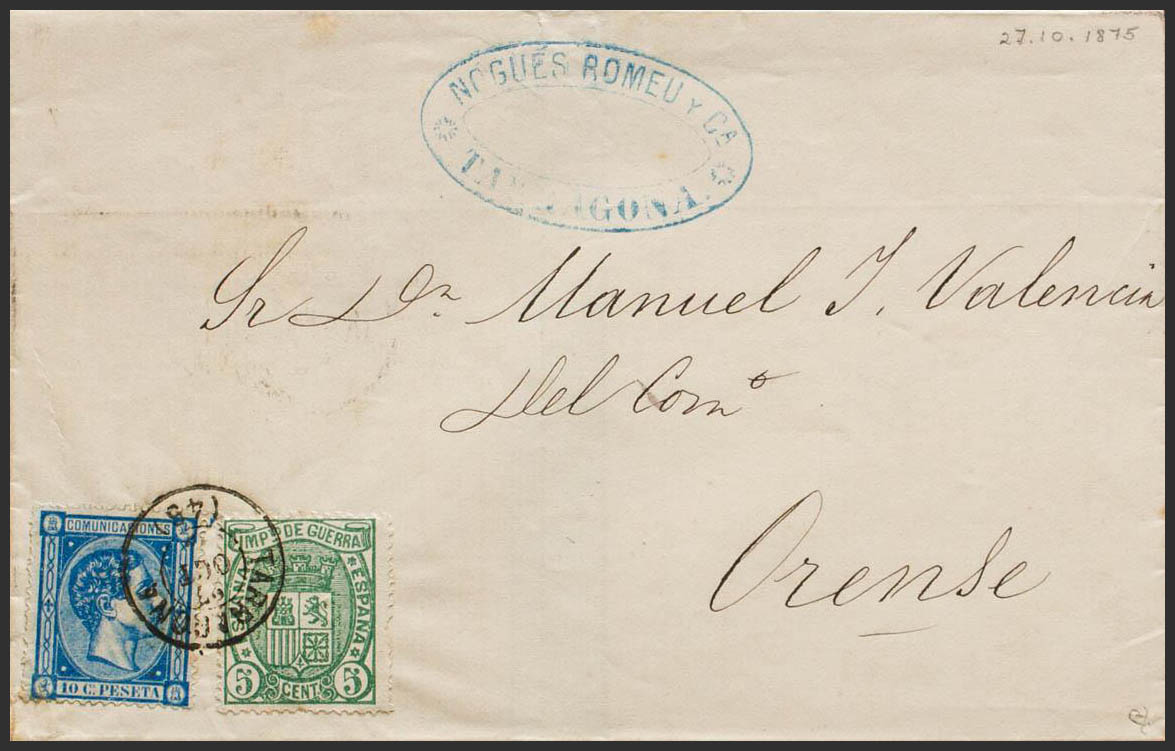 27.10.1875
NOGUÉS ROMEU Y Cª
TARRAGONA
Sr Dn. Manuel J. Valencia
Del Comº
Orense
TARRAGONA
(48
27
OCT
COMUNICACIONES
10 C. PESETA
IMPᵗᵒ DE GUERRA
ESPAÑA
5 CENT. 5